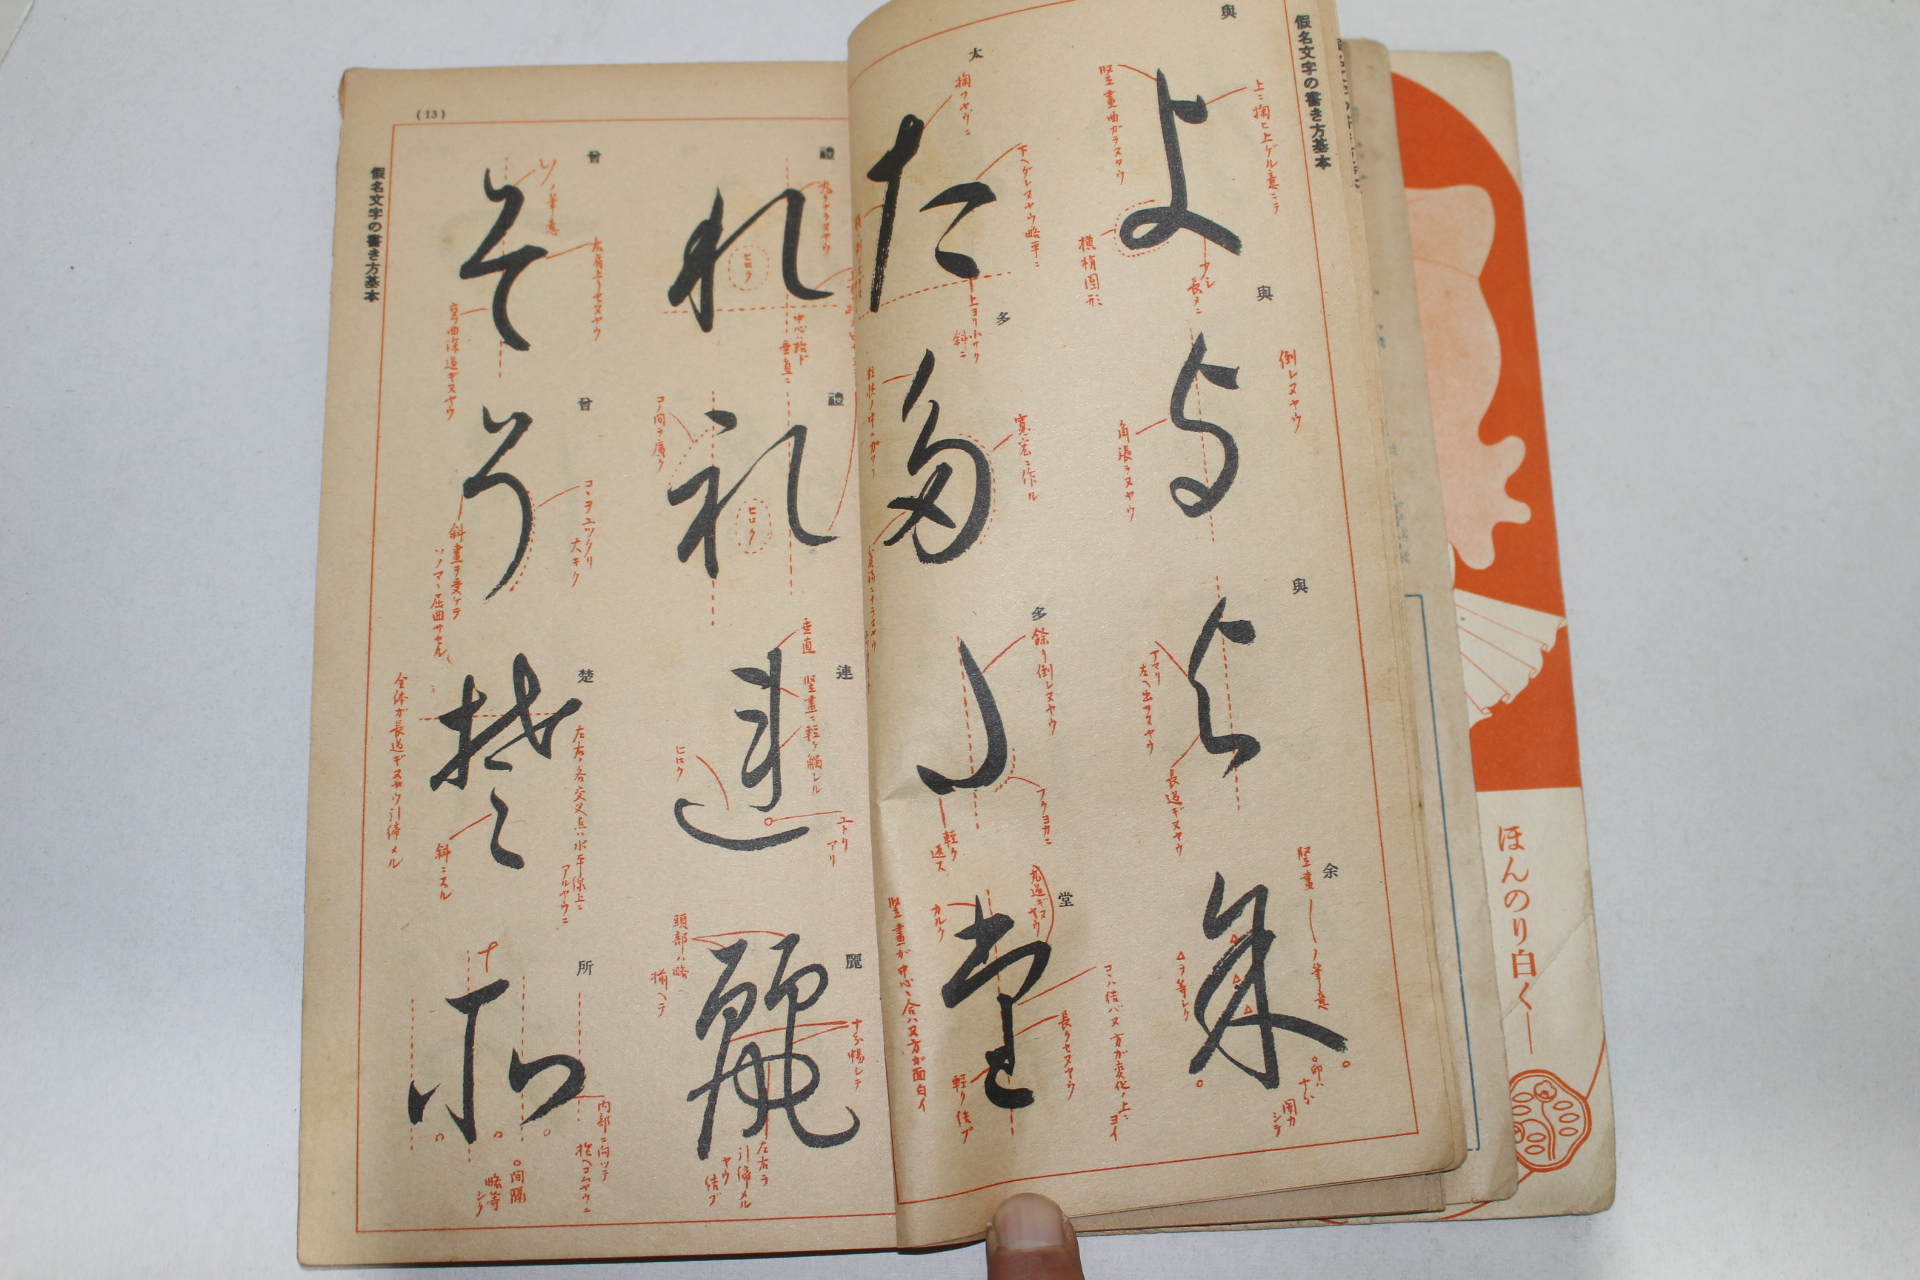 假名文字の書き方基本
與
よ
上ニ掬ヒ上ゲル意ニテ
竪畫曲ガラヌヤウ
横楕圓形
少シ
長メニ
與
倒レヌヤウ
角張ラヌヤウ
與
アマリ
左ヘ出サヌヤウ
長過ギヌヤウ
余
竪畫
ノ筆意
△ヲ等シク
○印ハ
十分
開カ
シテ
太
た
掬フヤウニ
下ヘゲレヌヤウ略平ニ
上ヨリ小サク
斜ニ
多
寛宏ニ作ル
多
餘リ倒レヌヤウ
フクヨカニ
軽ク
返ス
堂
丸過ギヌ
ヤウ
カルク
コヽハ結バヌ方ガ變化ノ上ニ
ヨイ
長クセヌヤウ
軽ク結ブ
竪畫ガ中心ニ合ハヌ方ガ面白イ
禮
れ
ヒロク
中心ハ殆ド
垂直ニ
禮
コノ間ヲ廣ク
ヒロク
連
垂直
竪畫ニ軽ク觸レル
ヒロク
ユトリ
アリ
麗
頭部ハ略
揃ヘテ
十分暢シテ
左右ヲ
引締メル
ヤウ
結ブ
曾
そ
ソノ筆意
右肩上リセヌヤウ
弯曲深過ギヌヤウ
曾
コヽヲユックリ
大キク
斜畫ヲ受ケテ
ソノマヽ屈曲サセル
楚
左、右、各交叉点ハ水平線上ニ
アルヤウニ
斜ニスル
全体ガ長過ギヌヤウ引締メル
所
内部ニ向ッテ
抱ヘコムヤウニ
○間隔
略等
シク
(13)
假名文字の書き方基本
ほんのり白く―